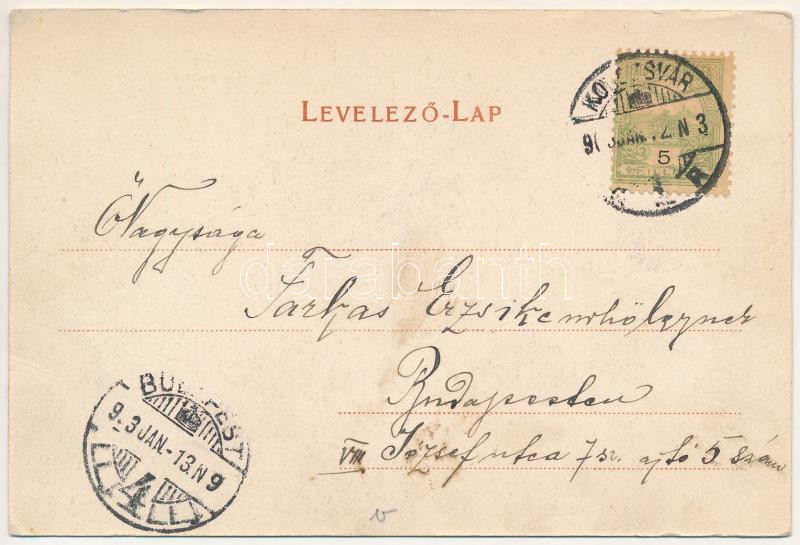 LEVELEZŐ-LAP
KOLOZSVÁR
JAN. 12. N 3
5
FILL
Őnagysága
Farkas Erzsike urhölgynek
Budapesten
VIII József utca 7 sz. ajtó 5 szám
BUDAPEST
9.3 JAN.-13.N 9
4
darabanth